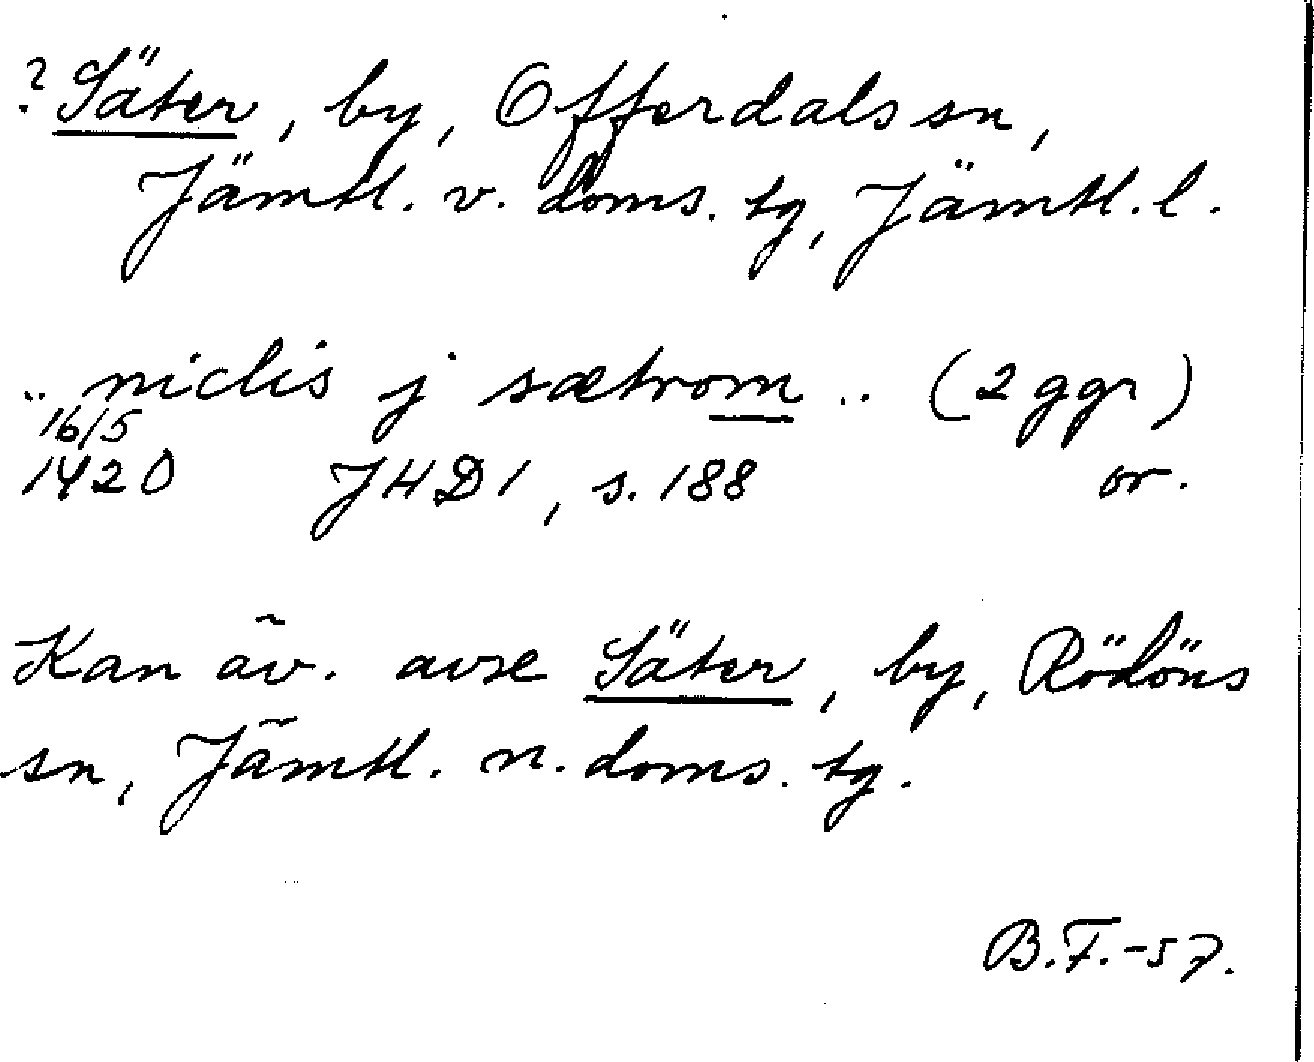 ? Säter, by, Offerdals sn,
Jämtl. v. doms. tg, Jämtl. l.
.. niclis j sætrom .. (2 ggr)
16/5
1420 JHD1, s. 188 or.
Kan äv. avse Säter, by, Rödöns
sn, Jämtl. n. doms. tg.
B.F.-57.